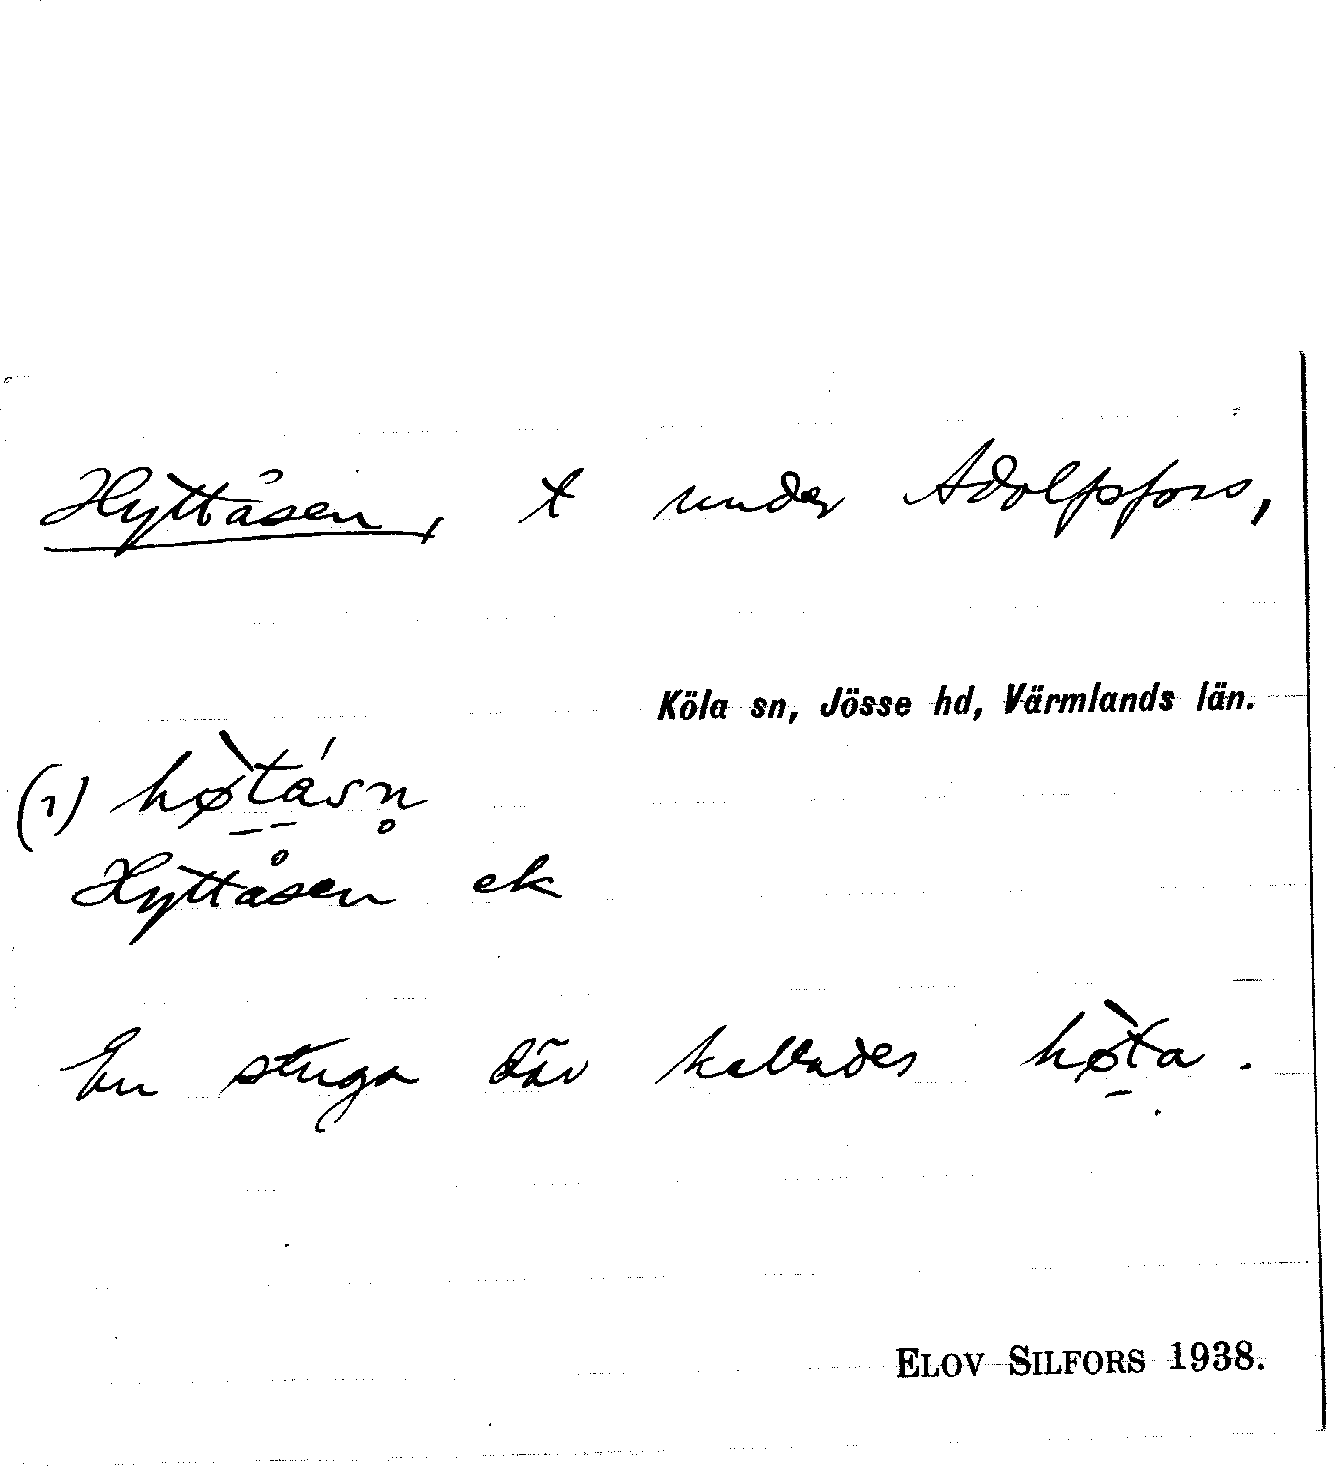 Hyttåsen, t under Adolfsfors,
Köla sn, Jösse hd, Värmlands län.
(ı) hø̀tásn̥
Hyttåsen ek
En stuga där kallades hø̀ta.
ELOV SILFORS 1938.